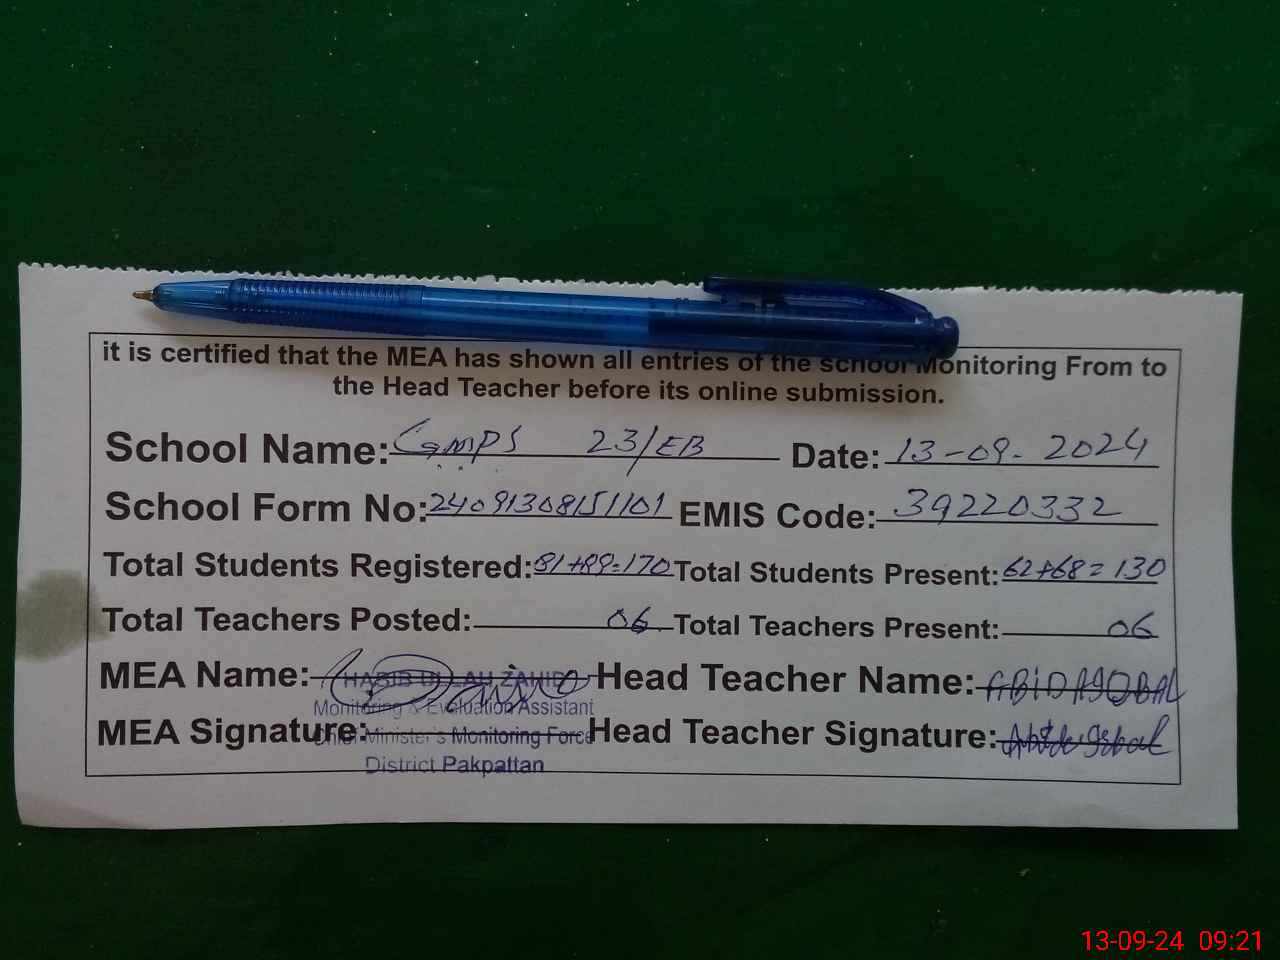 it is certified that the MEA has shown all entries of the school Monitoring From to
the Head Teacher before its online submission.
School Name: GMPS 23/EB Date: 13-09-2024
School Form No: 24091308151101 EMIS Code: 39220332
Total Students Registered: 81+89=170 Total Students Present: 62+68=130
Total Teachers Posted: 06 Total Teachers Present: 06
MEA Name: HABIB ULLAH ZAHID Head Teacher Name: ABID IQBAL
Monitoring & Evaluation Assistant
MEA Signature: Chief Minister's Monitoring Force Head Teacher Signature: Abid Iqbal
District Pakpattan
13-09-24 09:21